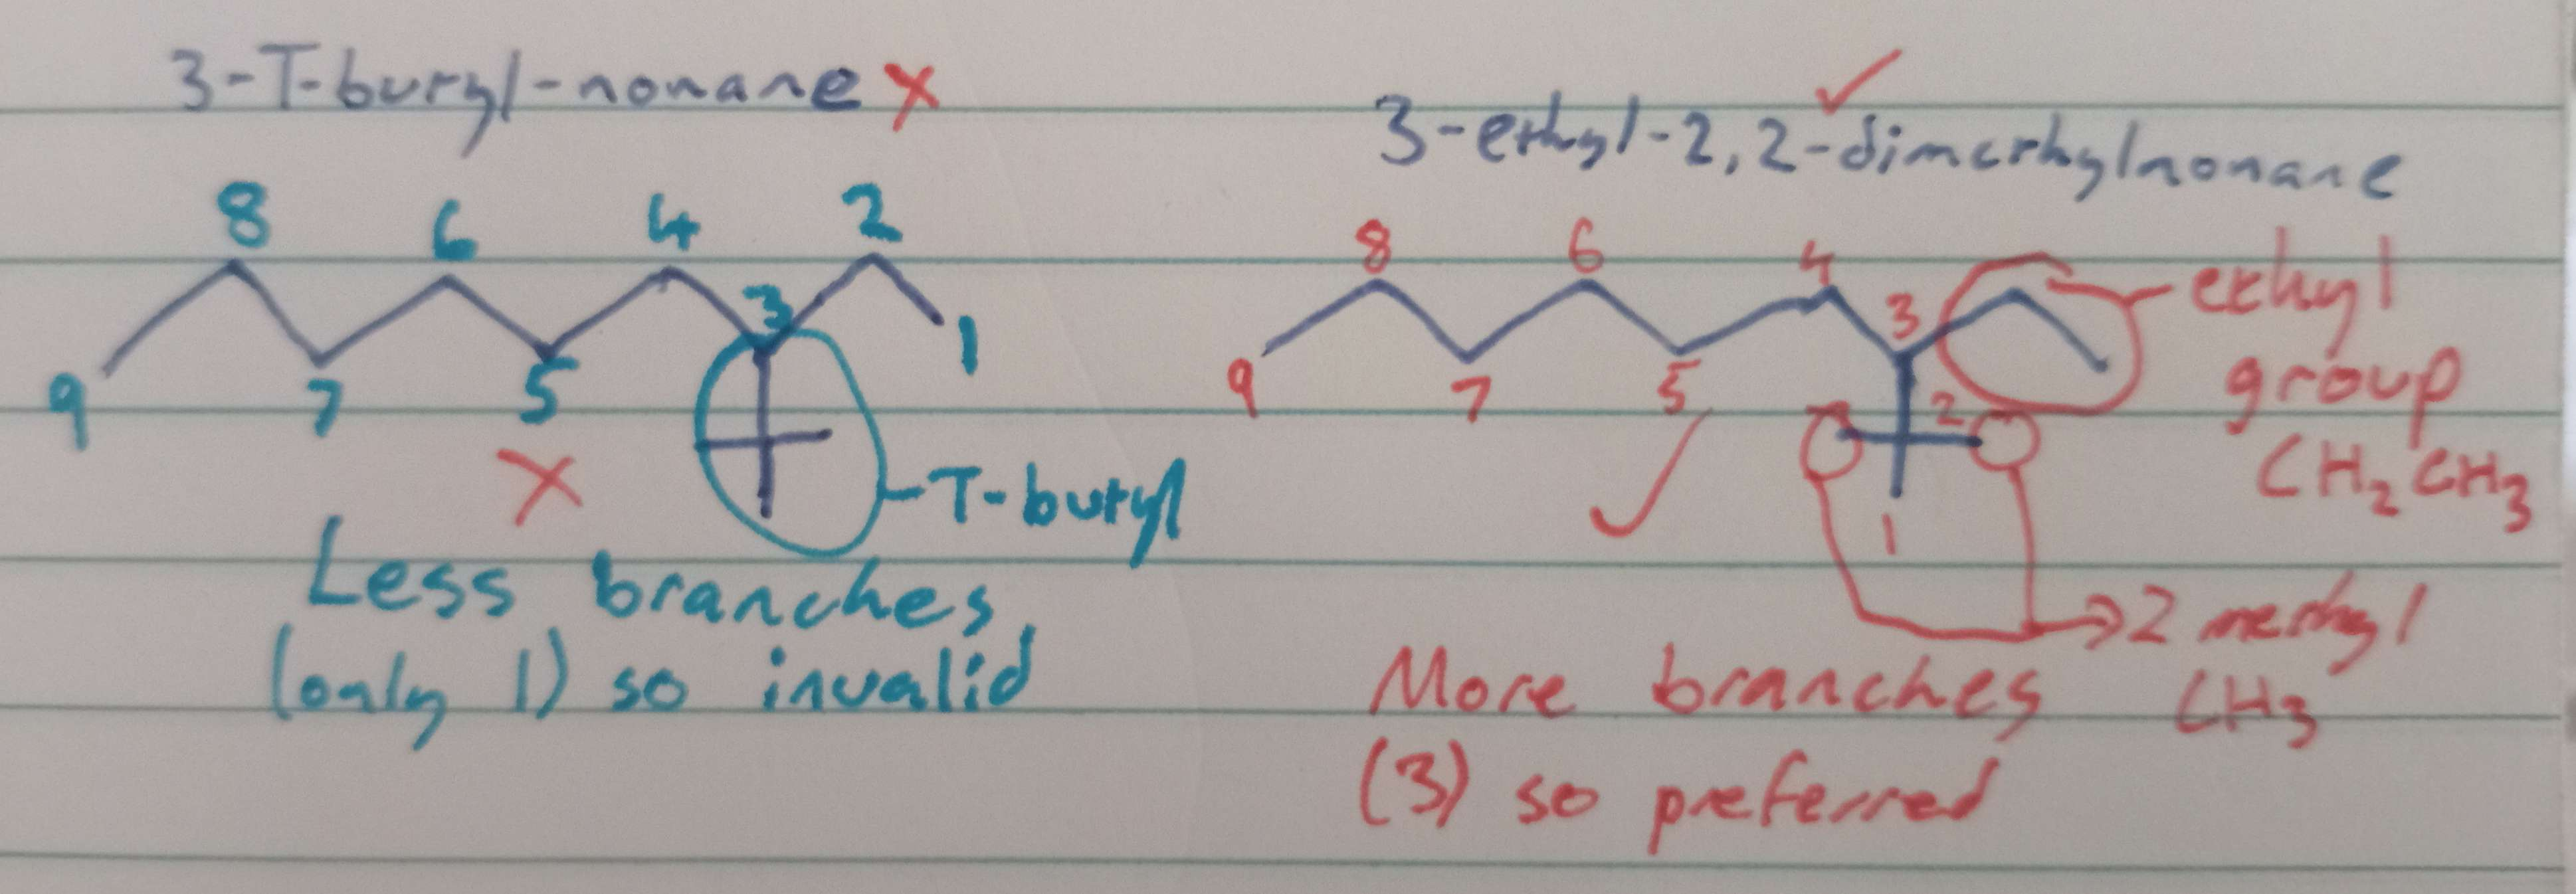 3-T-butyl-nonane X
8 6 4 2
3
9 7 5 1
X
T-butyl
Less branches
(only 1) so invalid
3-ethyl-2,2-dimethylnonane
8 6 4 3
9 7 5 2
1
ethyl
group
CH₂CH₃
2 methyl
CH₃
More branches
(3) so preferred